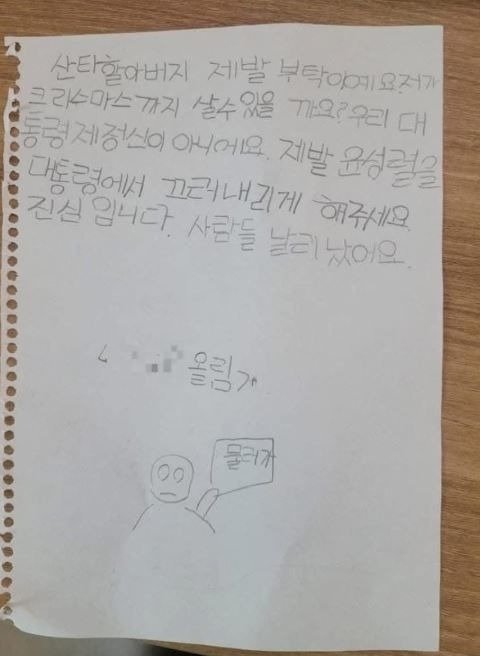 산타할아버지 제발 부탁이에요. 저가
크리스마스까지 살수 있을 까요? 우리 대
통령 제정신이 아니에요. 제발 윤성렬을
대통령에서 끄러내리게 해주세요.
진심 입니다. 사람들 날리 났어요.
올림
물러가